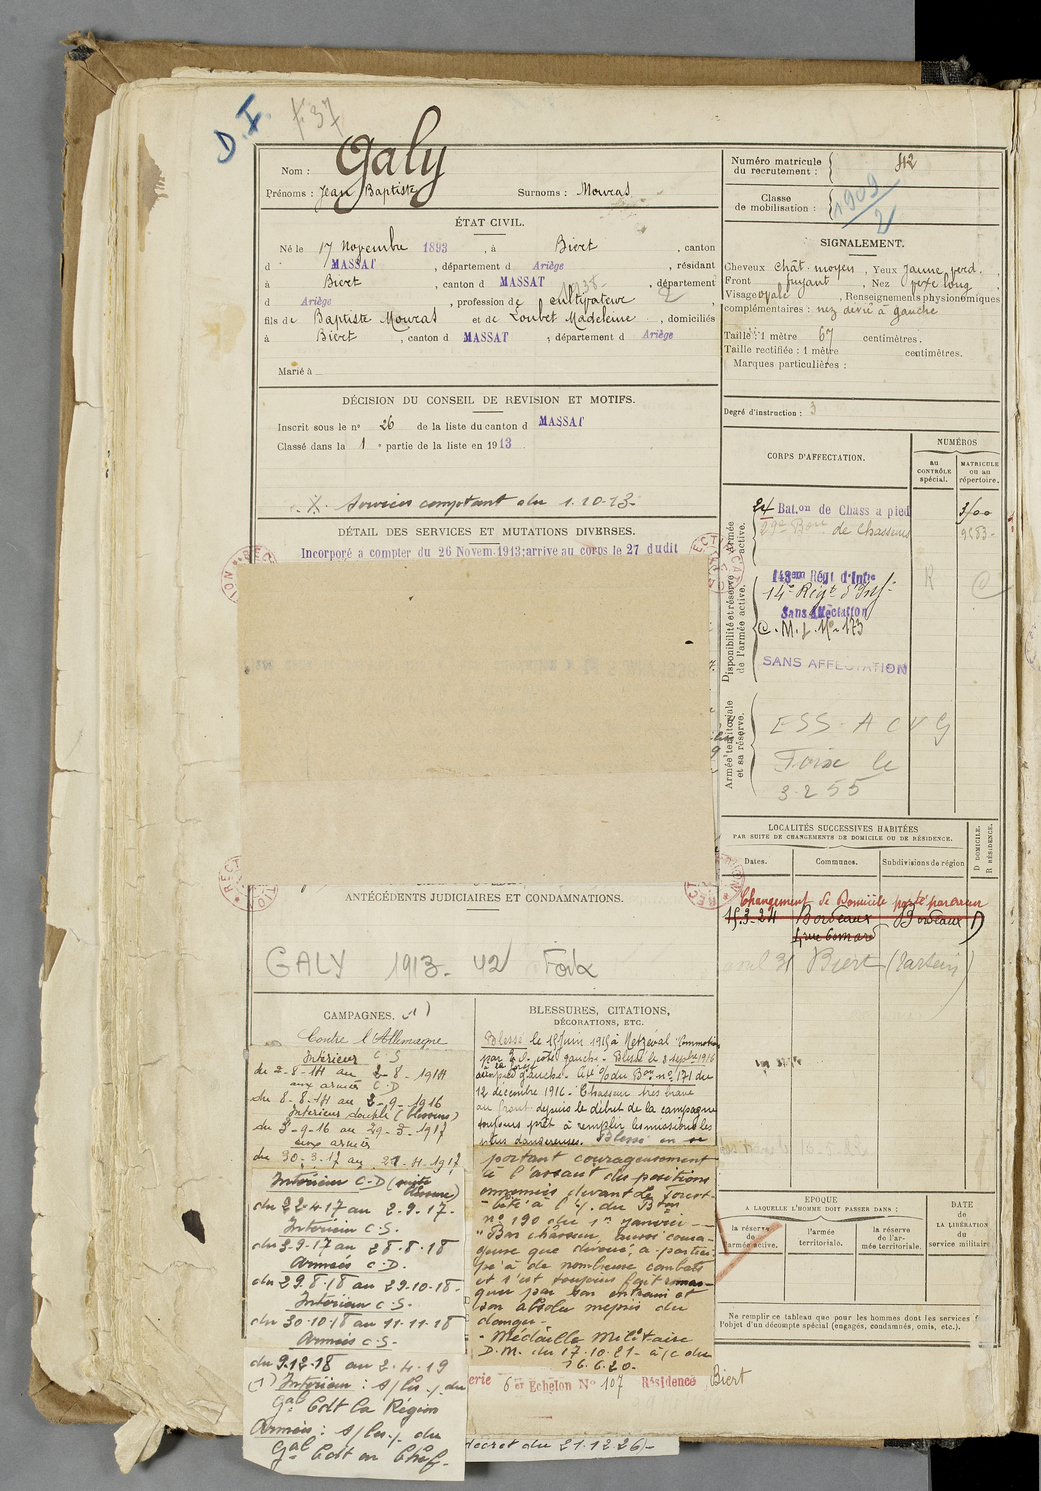 D.F. f. 37
Nom : Galy
Prénoms : Jean Baptiste Surnoms : Mouras
ÉTAT CIVIL.
Né le 17 Novembre 1893, à Biert, canton
d MASSAT, département d Ariège, résidant
à Biert, canton d MASSAT, département
d Ariège, profession de cultivateur
fils de Baptiste Mouras et de Loubet Madeleine, domiciliés
à Biert, canton d MASSAT, département d Ariège
Marié à
DÉCISION DU CONSEIL DE REVISION ET MOTIFS.
Inscrit sous le n° 26 de la liste du canton d MASSAT
Classé dans la 1 e partie de la liste en 1913
X. Services comptant du 1.10.13-
DÉTAIL DES SERVICES ET MUTATIONS DIVERSES.
Incorporé a compter du 26 Novem. 1913; arrive au corps le 27 dudit
ANTÉCÉDENTS JUDICIAIRES ET CONDAMNATIONS.
GALY 1913- 42 Foix
CAMPAGNES. (1)
Contre l'Allemagne
Intérieur C.S
du 2-8-14 au 2-8-1914
aux armées C.D
du 8-8-14 au 2-9-1916
Intérieur double (blessures)
du 3-9-16 au 29-3-1917
aux armées
du 30-3-17 au 21-4-1917
Intérieur C-D (suite blessure)
du 22-4-17 au 2-9-17-
Intérieur C.S.
du 3-9-17 au 28-8-18
Armées C.D.
du 29.8.18 au 29-10-18-
Intérieur C.S.
du 30-10-18 au 11-11-18
Armées C.S-
du 9.12-18 au 2-4-19
(1) Intérieur : s/les y. du
Gal Cdt la Région
Armées : s/les y. du
Gal Cdt en Chef-
BLESSURES, CITATIONS,
DÉCORATIONS, ETC.
Blessé le 15 Juin 1915 à Metzeral "Commotion
par E.O. côté gauche- Blessé le 3 septbre 1916
à la Forest
pied gauche. Cité o/du Bon n° 171 du
12 décembre 1916- Chasseur très brave
au front depuis le début de la campagne
toujours prêt à remplir les missions les
plus dangereuses. Blessé en se
portant courageusement
à l'assaut des positions
ennemies devant Le Forest-
- Cité à l'o/. du Btn
n° 190 du 1er janvier -
"Bon chasseur, aussi coura-
geux que dévoué, a partici-
pé à de nombreux combats
et s'est toujours fait remar-
quer par son entrain et
son absolu mépris du
danger-
- Médaille Militaire
D.M. du 17-10-21- à/c du
16.6.20-
erie 6 er Echelon N° 107 Résidence Biert
décret du 21.12.26)-
Numéro matricule
du recrutement : 42
Classe
de mobilisation : 1909/2
SIGNALEMENT.
Cheveux chât. moyen, Yeux jaune verd.
Front fuyant, Nez vexe long
Visage ovale, Renseignements physionomiques
complémentaires : nez dévié à gauche
Taille : 1 mètre 67 centimètres.
Taille rectifiée : 1 mètre centimètres.
Marques particulières :
Degré d'instruction : 3
CORPS D'AFFECTATION.
NUMÉROS
AU CONTRÔLE spécial.
MATRICULE ou au répertoire.
Armée active.
24 Bat.on de Chass a pied 3400
29e Bon de Chasseurs
Disponibilité et réserve de l'armée active.
143eme Régt d'Infie
14e Régt d'Inf.
Sans Affectation
C.M.I. N° 173
SANS AFFECTATION
Armée territoriale et sa réserve.
ESS. A C V G
Foix le
3.2.55
LOCALITÉS SUCCESSIVES HABITÉES
PAR SUITE DE CHANGEMENTS DE DOMICILE OU DE RÉSIDENCE.
Dates. Communes. Subdivisions de région
D DOMICILE.
R RÉSIDENCE.
Changement de Domicile porté par erreur
15.3-24 Bordeaux Bordeaux D
31 Biert
EPOQUE
A LAQUELLE L'HOMME DOIT PASSER DANS :
la réserve de l'armée active.
l'armée territoriale.
la réserve de l'armée territoriale.
DATE de LA LIBÉRATION du service militaire
Ne remplir ce tableau que pour les hommes dont les services f
l'objet d'un décompte spécial (engagés, condamnés, omis, etc.).